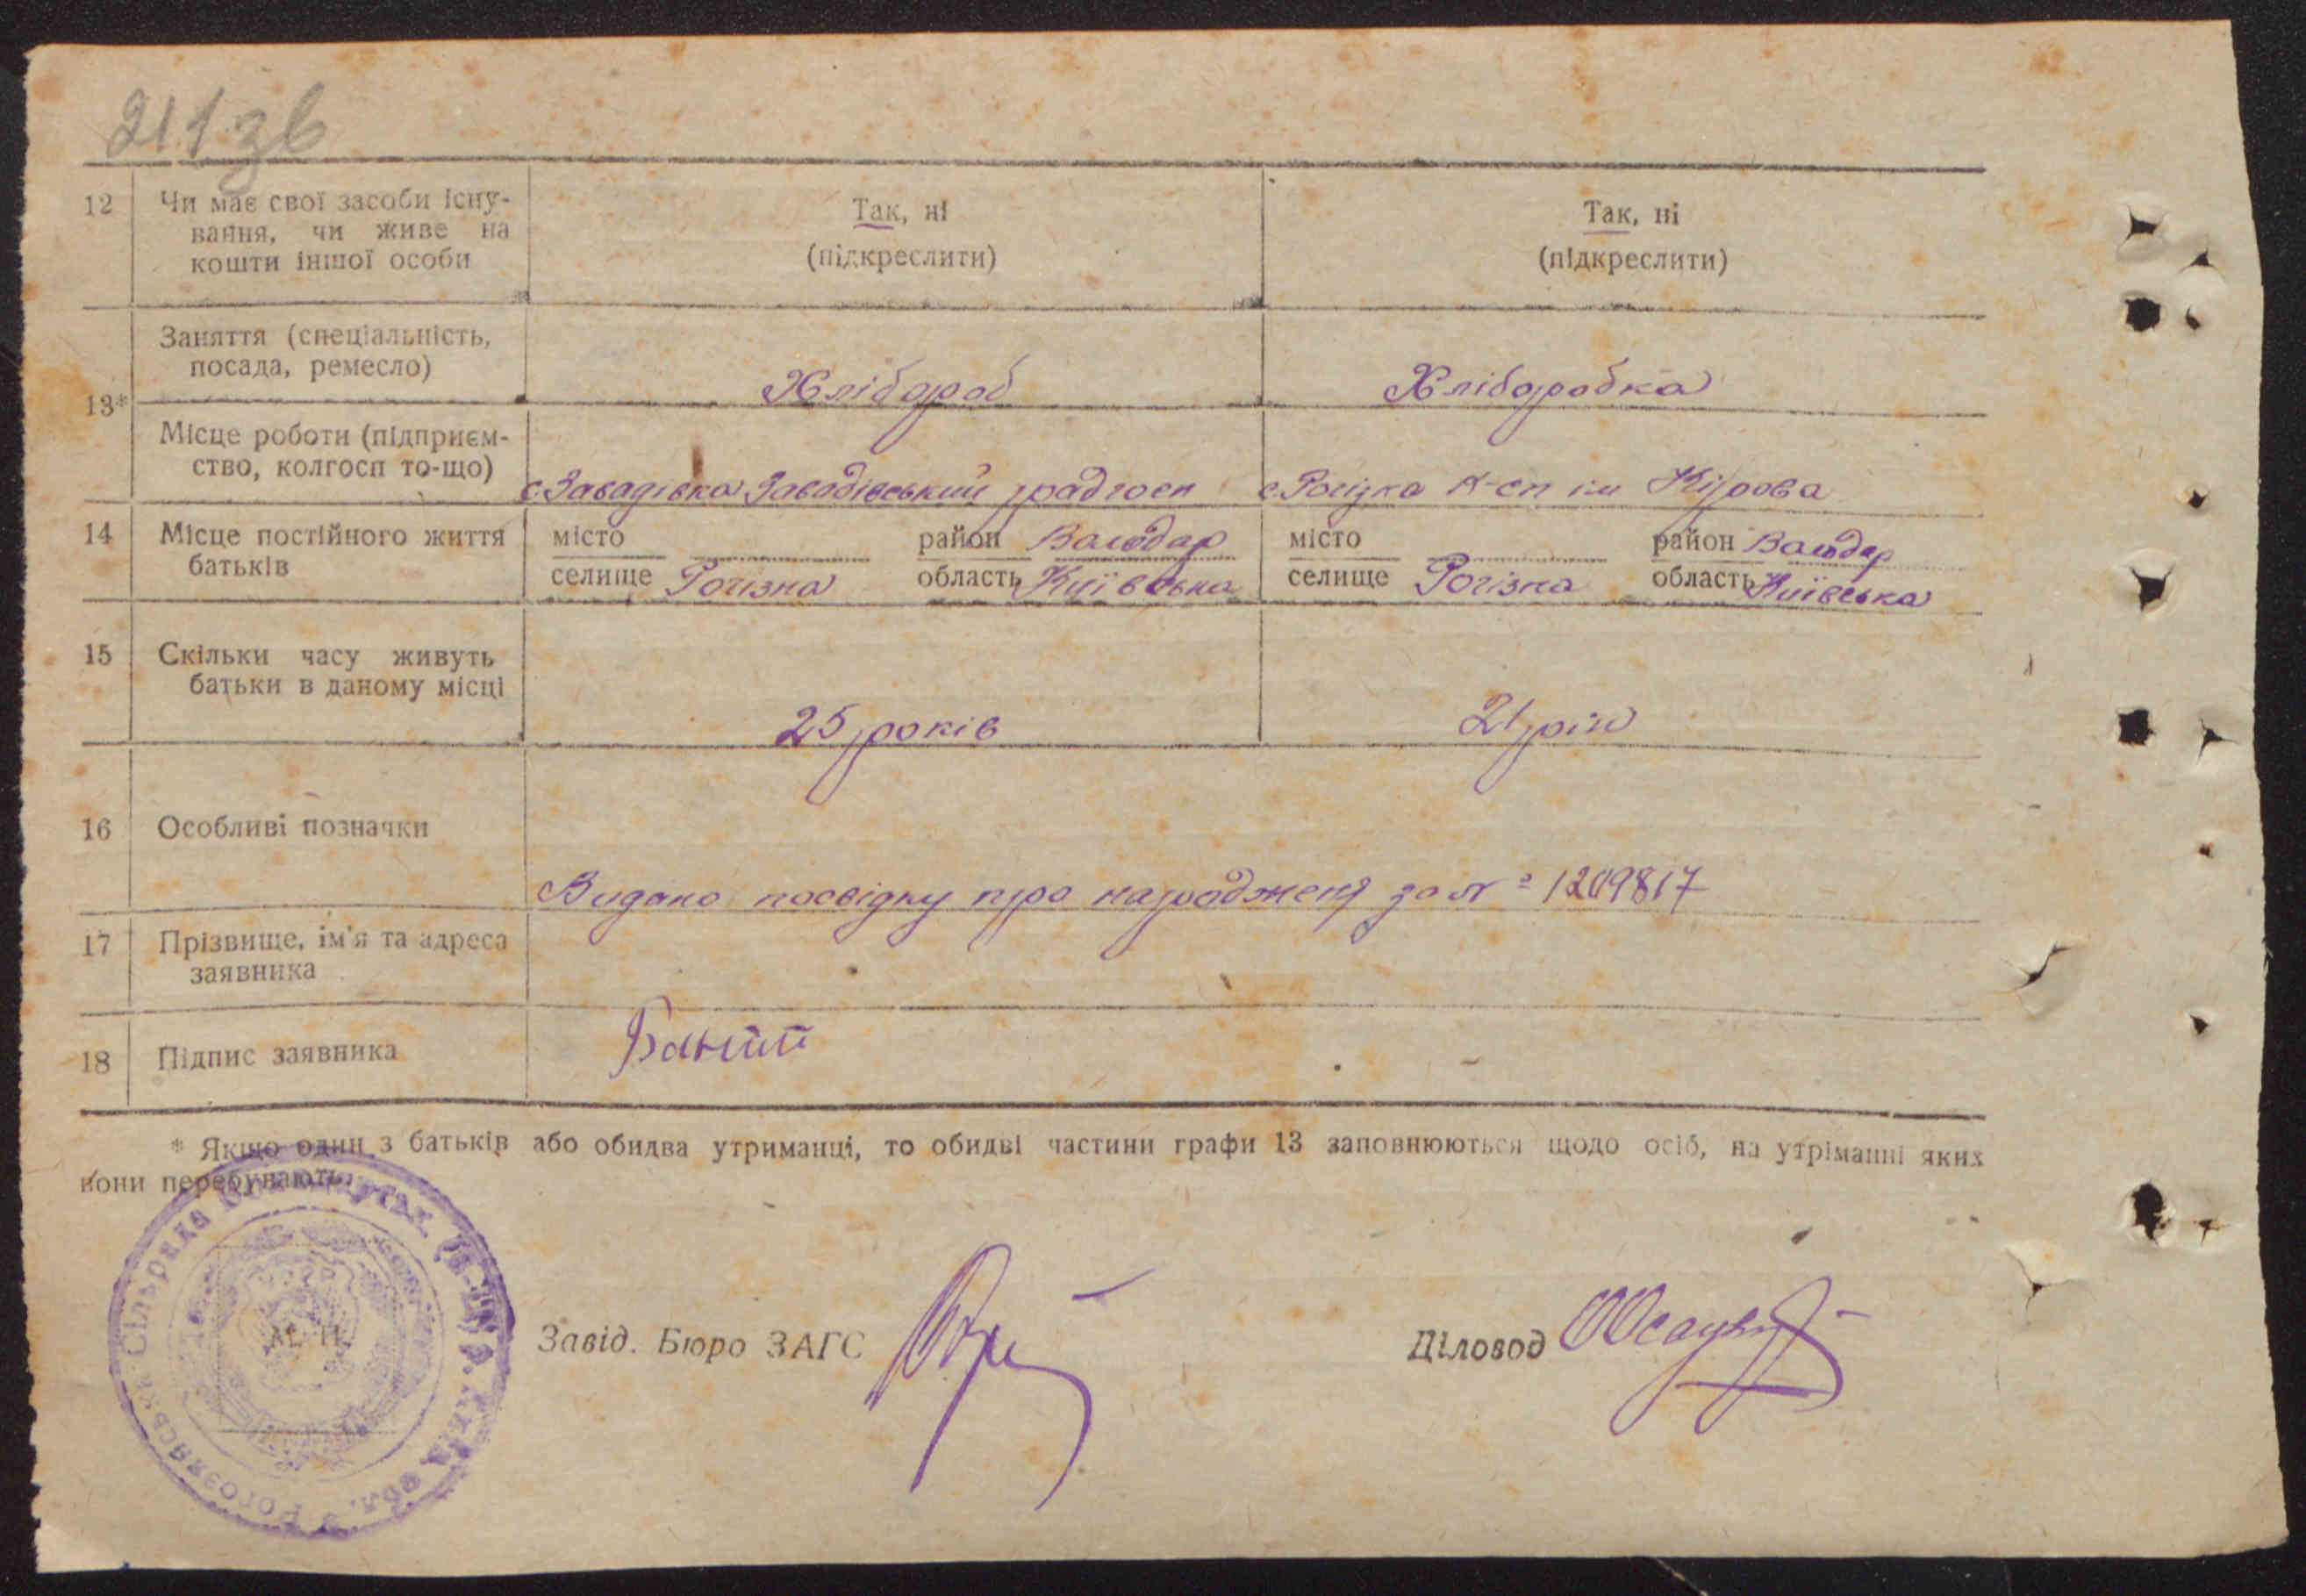 211зв
12 Чи має свої засоби існу- Так, ні Так, ні
вання, чи живе на (підкреслити) (підкреслити)
кошти іншої особи
13* Заняття (спеціальність,
посада, ремесло) Хлібороб Хлібаробка
Місце роботи (підприєм-
ство, колгосп то-що) с Завадівка Завадівський радгосп с Рогізна к-сп ім Кірова
14 Місце постійного життя місто район Володар місто район Володар
батьків селище Рогізна область Київська селище Рогізна область Київська
15 Скільки часу живуть
батьки в даному місці
25 років 21 рік
16 Особливі позначки
Видано посвідку про народженя за № 1209817
17 Прізвище, ім'я та адреса
заявника
18 Підпис заявника
* Якщо один з батьків або обидва утриманці, то обидві частини графи 13 заповнюються щодо осіб, на утріманні яких
вони перебувають.
Завід. Бюро ЗАГС Діловод